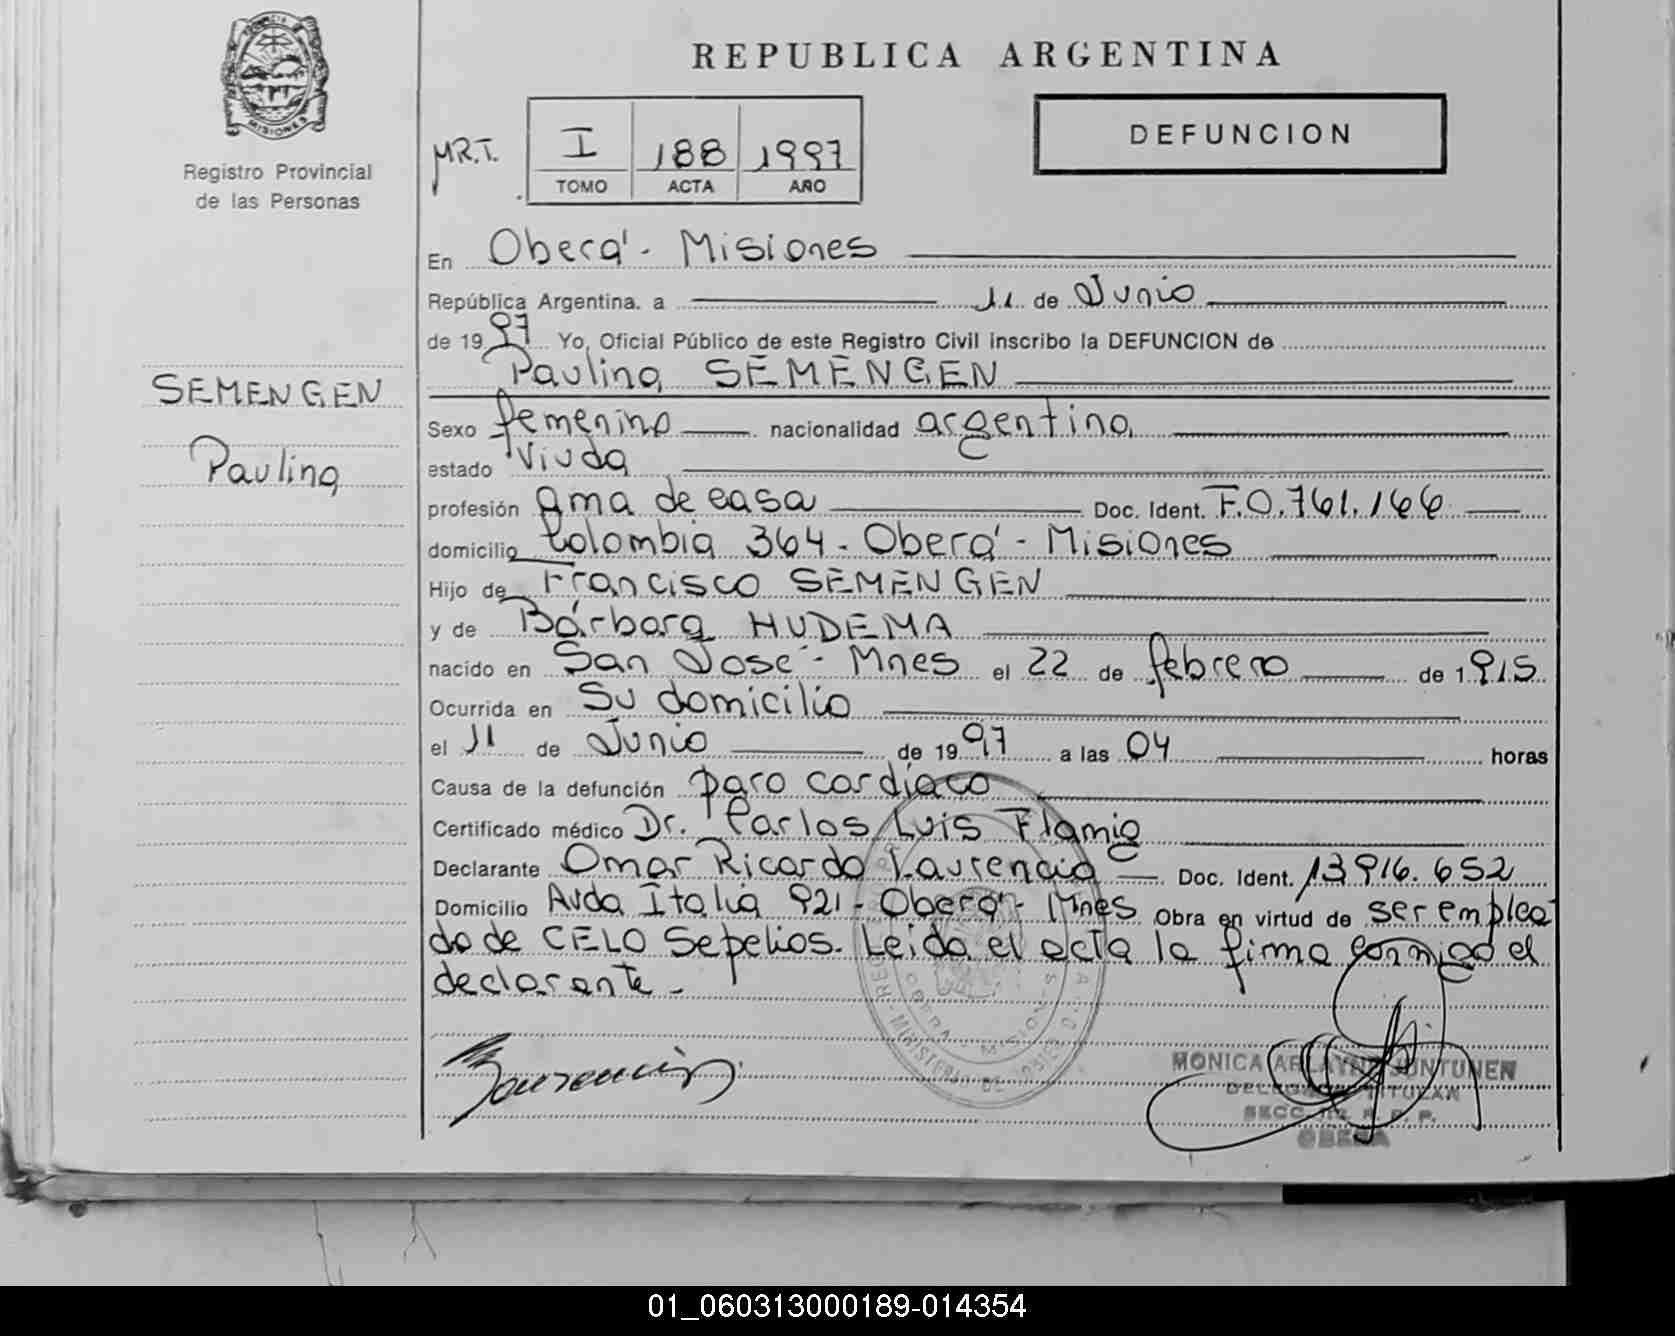 REPUBLICA ARGENTINA
MISIONES
Registro Provincial
de las Personas
MR.T.
I 188 1997
TOMO ACTA AÑO
DEFUNCION
En Oberá - Misiones
República Argentina. a 11 de Junio
de 1997 Yo, Oficial Público de este Registro Civil inscribo la DEFUNCION de
Paulina SEMENGEN
SEMENGEN
Paulina
Sexo femenino nacionalidad argentina
estado Viuda
profesión Ama de casa Doc. Ident. F.0.761.166
domicilio Colombia 364 - Oberá - Misiones
Hijo de Francisco SEMENGEN
y de Bárbara HUDEMA
nacido en San José - Mnes el 22 de febrero de 1915
Ocurrida en Su domicilio
el 11 de Junio de 1997 a las 04 horas
Causa de la defunción paro cardíaco
Certificado médico Dr. Carlos Luis Flamig
Declarante Omar Ricardo Laurencio Doc. Ident. 13916.652
Domicilio Avda Italia 921 - Oberá - Mnes Obra en virtud de ser emplea
do de CELO Sepelios. Leida el acta la firma conmigo el
declarante.
OBERA MISIONES
MINISTERIO DE
MONICA JUNTUNEN
TITULAR
SECC. R. P. P.
OBERA
01_060313000189-014354